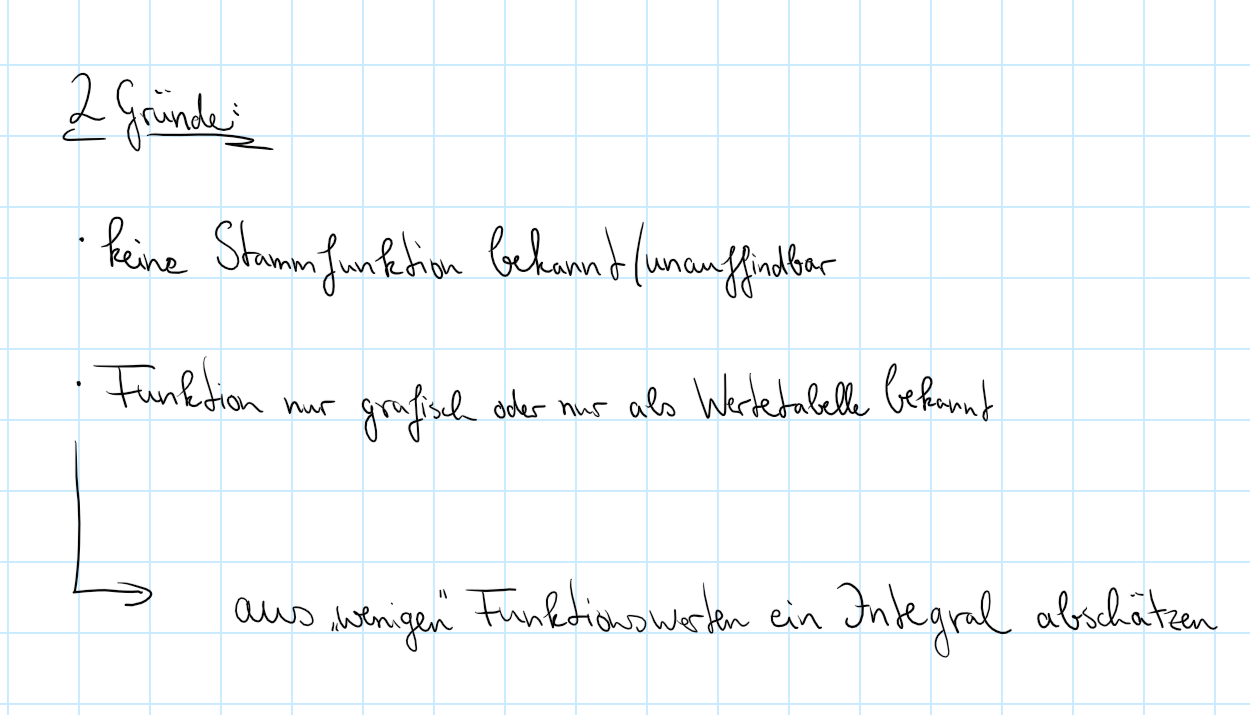 2 Gründe:
· keine Stammfunktion bekannt/unauffindbar
· Funktion nur grafisch oder nur als Wertetabelle bekannt
→ aus „wenigen" Funktionswerten ein Integral abschätzen